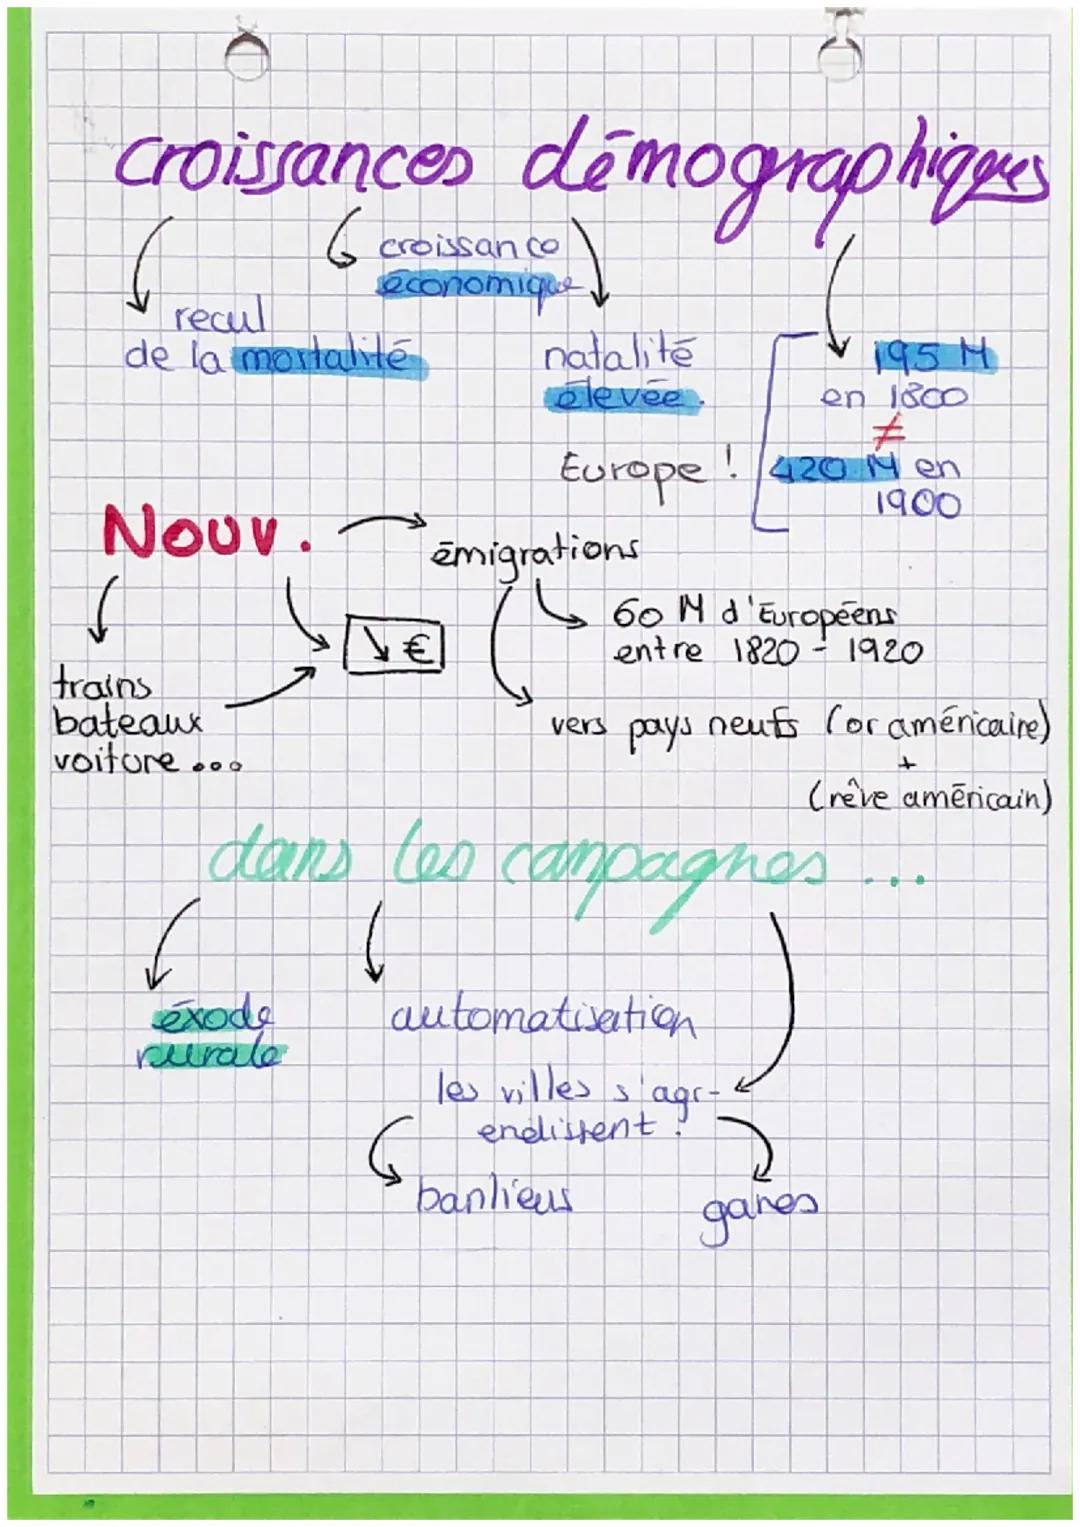 croissances démographiques
croissance
économique
recul
de la mortalité
natalité
élevée.
195 M
en 1800
≠
Europe ! 420 M en
1900
Nouv.
émigrations
60 M d'Européens
entre 1820 - 1920
↘ €
trains
bateaux
voiture ...
vers pays neufs (or américaine)
+
(rêve américain)
dans les campagnes ...
éxode
rurale
automatisation
les villes s'agr-
endissent !
banlieus
gares